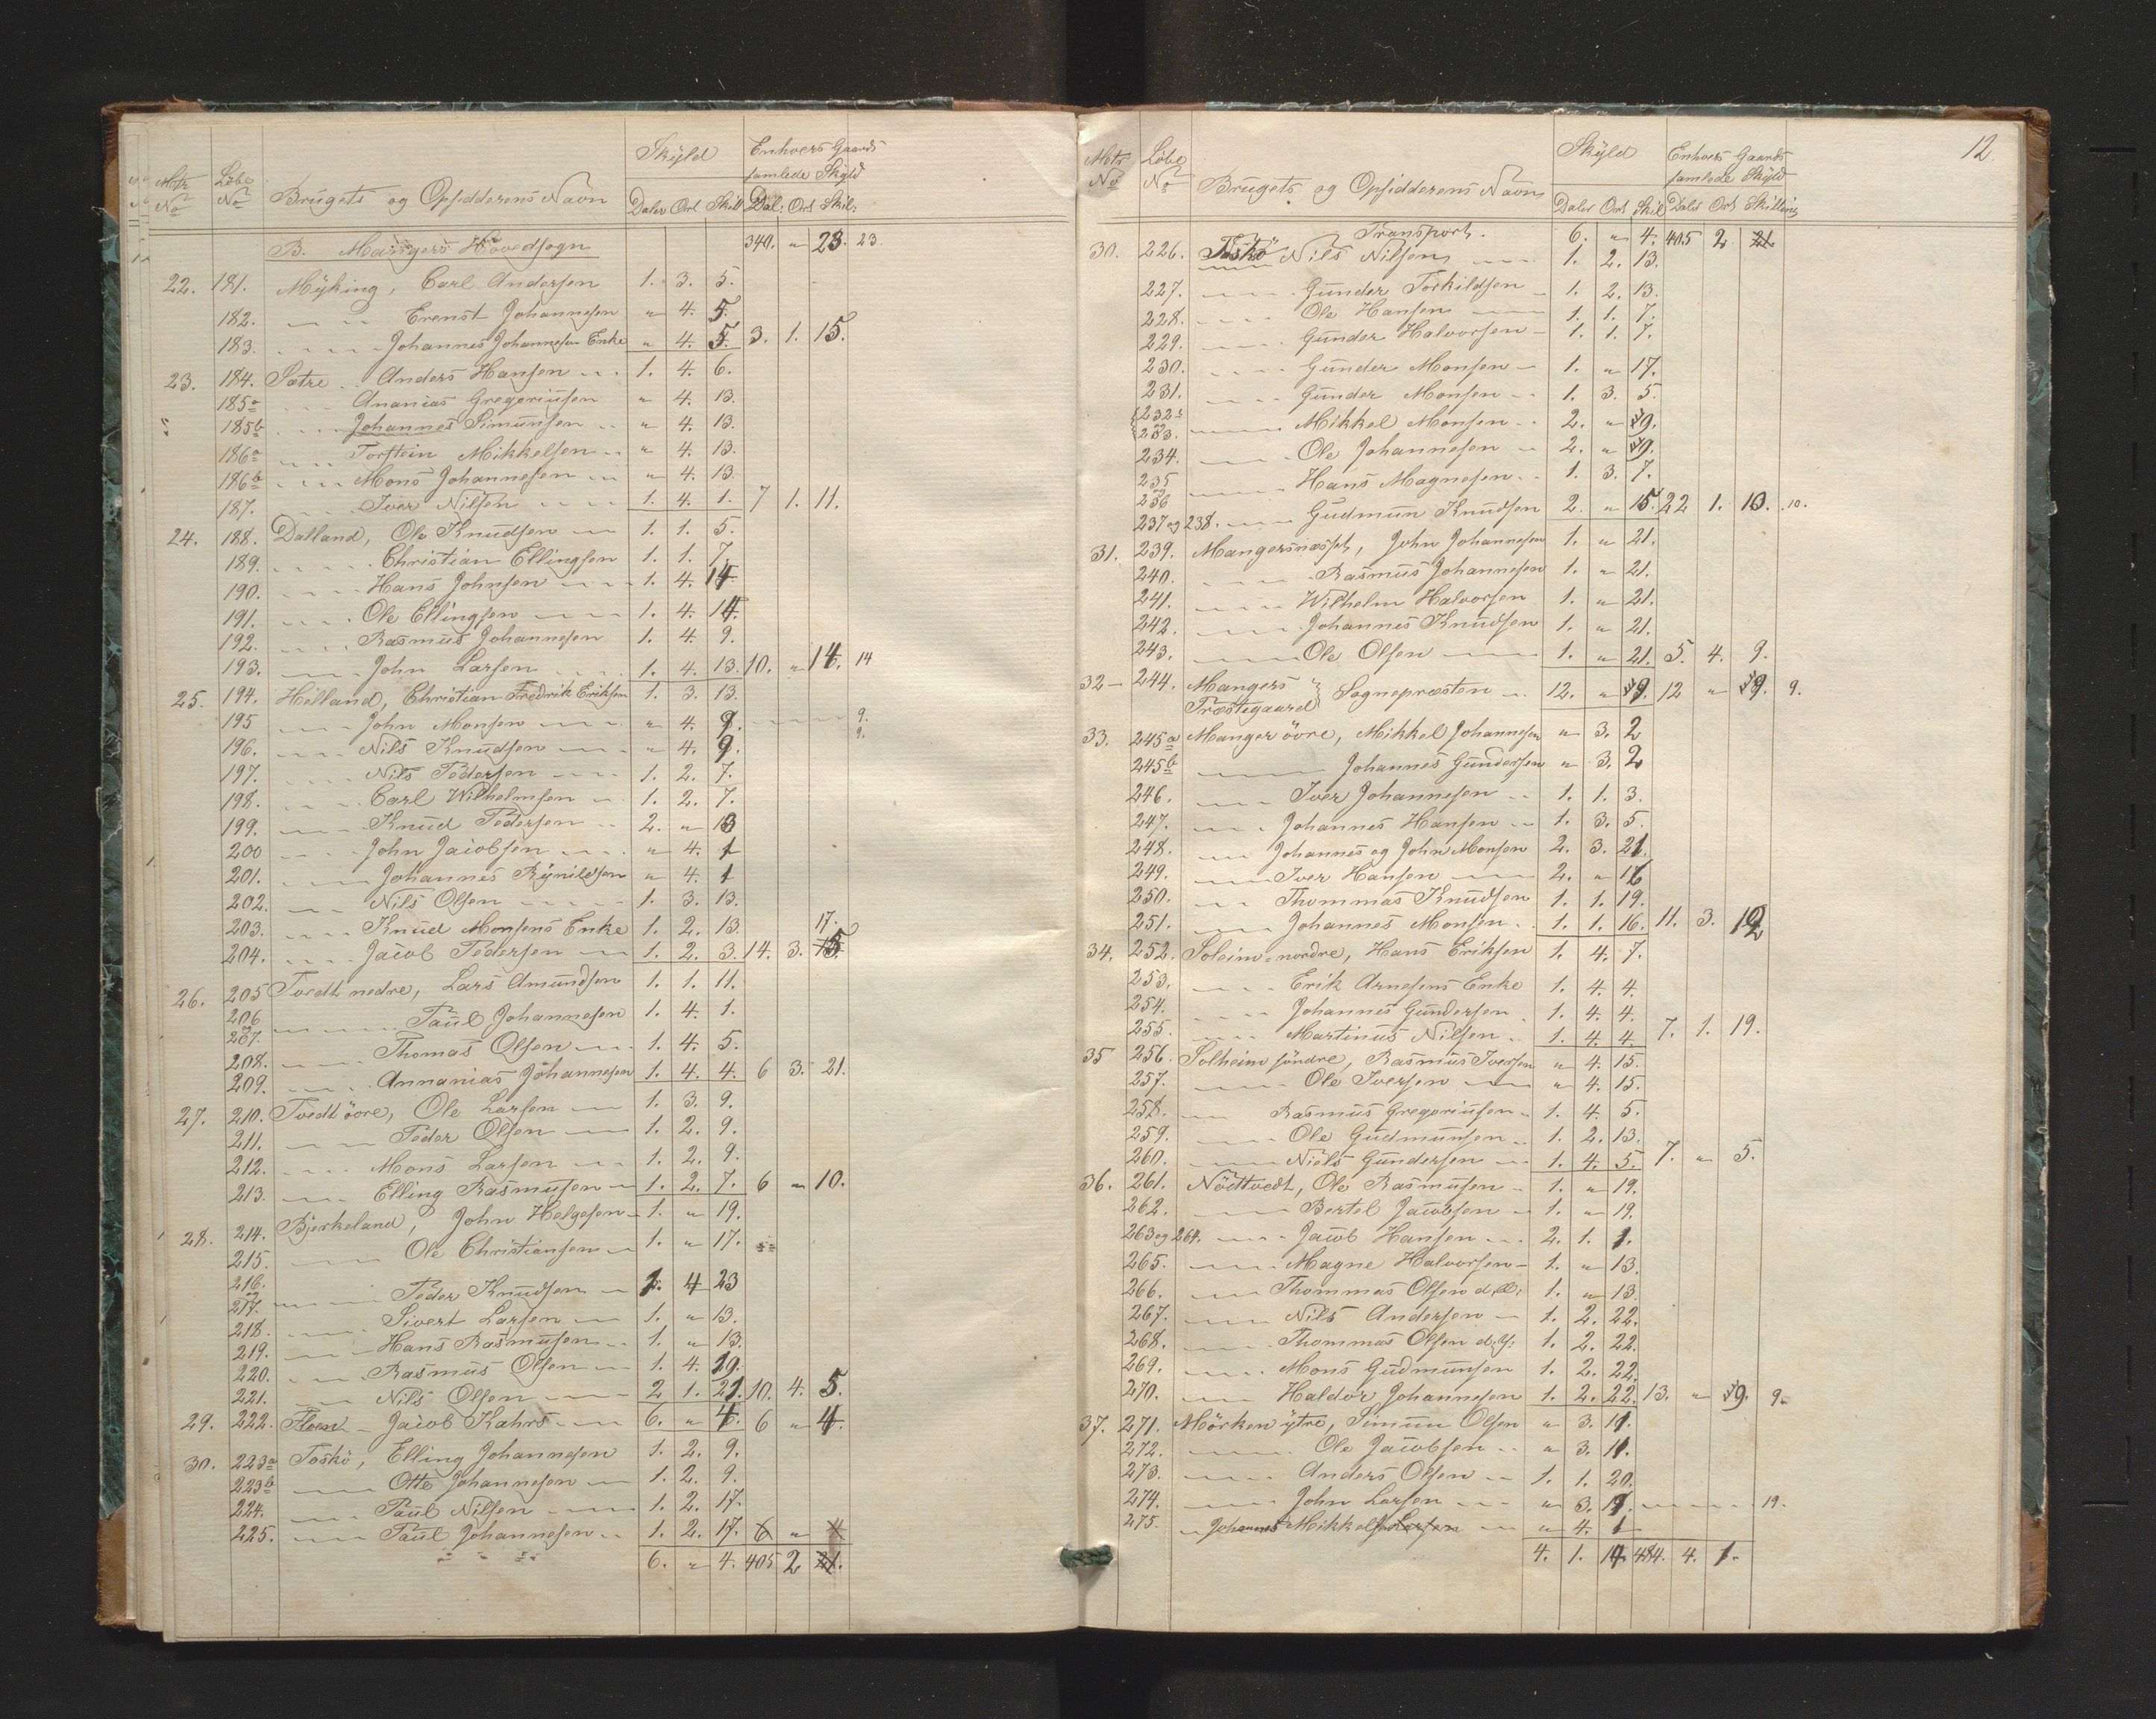 Mtr No Löbe No Brugets og Opsidderens Navn Skyld Enhvers Gaards samlede Skyld
Daler Ort Skill Dal: Ort Skil:
B. Mangers Hovedsogn 340. " 23. 23.
22. 181. Myking, Carl Andersen 1. 3. 5.
182. Erenst Johannesen " 4. 5.
183. Johannes Johannesen Enke " 4. 5. 3. 1. 15.
23. 184. Sætre Anders Hansen 1. 4. 6.
185a Ananias Gregoriusen " 4. 13.
185b Johannes Simunsen " 4. 13.
186a Torstein Mikkelsen " 4. 13.
186b Mons Johannesen " 4. 13.
187. Iver Nilsen 1. 4. 1. 7 1. 11.
24. 188. Dalland, Ole Knudsen 1. 1. 5.
189. Christian Ellingsen 1. 1. 7.
190. Hans Johnsen 1. 4. 14.
191. Ole Ellingsen 1. 4. 14.
192. Rasmus Johannesen 1. 4. 9.
193. John Larsen 1. 4. 13. 10. " 14. 14
25. 194. Helland, Christian Fredrik Eriksen 1. 3. 13.
195 John Monsen " 4. 9. 9.
196. Nils Knudsen " 4. 9. 9.
197. Nils Pedersen 1. 2. 7.
198. Carl Wilhelmsen 1. 2. 7.
199. Knud Pedersen 2. " 13
200 John Jacobsen " 4. 1
201. Johannes Rynildsen " 4. 1
202. Nils Olsen 1. 3. 13.
203. Knud Monsens Enke 1. 2. 13. 17.
204. Jacob Pedersen 1. 2. 3. 14. 3. 15.
26. 205 Tvedt nedre, Lars Amundsen 1. 1. 11.
206 og 207. Paul Johannesen 1. 4. 1.
208. Thomas Olsen 1. 4. 5.
209. Annanias Johannesen 1. 4. 4. 6 3. 21.
27. 210. Tvedt övre, Ole Larsen 1. 3. 9.
211. Peder Olsen 1. 2. 9.
212. Mons Larsen 1. 2. 9.
213. Elling Rasmusen 1. 2. 7. 6 " 10.
28. 214. Bjerkeland, John Helgesen 1. " 19.
215. Ole Christiansen 1. " 17.
216. og 217. Peder Knudsen 1. 4 23
218. Sivert Larsen 1. " 13.
219. Hans Rasmusen 1. " 13.
220. Rasmus Olsen 1. 4. 19.
221. Nils Olsen 2 1. 21. 10. 4. 5.
29. 222. Floen Jacob Kahrs 6. " 4. 6 " 4.
30. 223a Toskö, Elling Johannesen 1. 2. 9.
223b Otte Johannesen 1. 2. 9.
224. Paul Nilsen 1. 2. 17.
225. Paul Johannesen 1. 2. 17. 6 " 4.
6. " 4. 405 2 21.
12.
Mtr No Löbe No Brugets og Opsidderens Navn Skyld Enhvers Gaards samlede Skyld
Daler Ort Skil Daler Ort Skilling
Transport. 6. " 4. 405 2 21.
30. 226. Toskö Nils Nilsen 1. 2. 13.
227. Gunder Torkildsen 1. 2. 13.
228. Ole Hansen 1. 1. 7.
229. Gunder Halvorsen 1. 1. 7.
230. Gunder Monsen 1. " 17.
231. Gunder Monsen 1. 3. 5.
232 og 233. Mikkel Monsen 2. " 9.
234. Ole Johannesen 2. " 9.
235 og 236 Hans Magnesen 1. 3. 7.
237 og 238. Gudmun Knudsen 2. " 15. 22 1. 10. 10.
31. 239. Mangersnæsset, John Johannesen 1. " 21.
240. Rasmus Johannesen 1. " 21.
241. Wilhelm Halvorsen 1. " 21.
242. Johannes Knudsen 1. " 21.
243. Ole Olsen 1. " 21. 5. 4. 9.
32 244. Mangers Præstegaard Sognepræsten 12. " 9. 12 " 9. 9.
33. 245a Manger övre, Mikkel Johannesen " 3. 2
245b Johannes Gundersen " 3. 2
246. Iver Johannesen 1. 1. 3.
247. Johannes Hansen 1. 3. 5.
248. Johannes og John Monsen 2. 3. 21.
249. Iver Hansen 2. " 16
250. Thommas Knudsen 1. 1. 19.
251. Johannes Monsen 1. 1. 16. 11. 3. 12
34. 252. Soleim nordre, Hans Eriksen 1. 4. 7.
253. Erik Arnesens Enke 1. 4. 4.
254. Johannes Gundersen 1. 4. 4.
255. Martinus Nilsen 1. 4. 4. 7. 1. 19.
35 256. Solheim söndre, Rasmus Iversen " 4. 15.
257. Ole Iversen " 4. 15.
258. Rasmus Gregoriusen 1. 4. 5.
259. Ole Gudmunsen 1. 2. 13.
260. Niels Gundersen 1. 4. 5. 7. " 5.
36. 261. Nödtvedt, Ole Rasmusen 1. " 19.
262. Bertel Jacobsen 1. " 19.
263 og 264. Jacob Hansen 2. 1. 1.
265. Magne Halvorsen 1. " 13.
266. Thommas Olsen d. Æ: 1. " 13.
267. Nils Andersen 1. 2. 22.
268. Thommas Olsen d. Y: 1. 2. 22.
269. Mons Gudmunsen 1. 2. 22.
270. Haldor Johannesen 1. 2. 22. 13. " 9. 9.
37. 271. Mörken ytre, Simun Olsen " 3. 11.
272. Ole Jacobsen " 3. 11.
273. Anders Olsen 1. 1. 20.
274. John Larsen " 3. 19. 19.
275. Johannes Mikkelsen Larsen " 4. 1
4. 1. 14. 484. 4. 1.